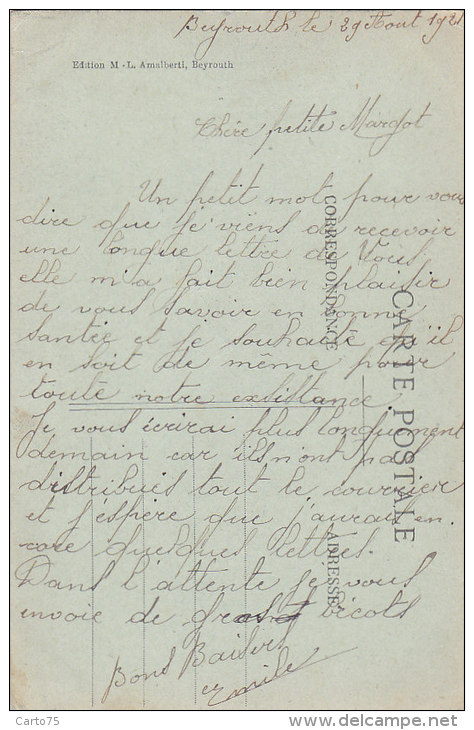 Beyrouth le 29 Aout 1921
Edition M.-L. Amalberti, Beyrouth
Chère petite Margot
Un petit mot pour vous
dire que je viens de recevoir
une longue lettre de Vous
elle m'a fait bien plaisir
de vous savoir en bonne
santée et je souhaite qu'il
en soit de même pour
toute notre existance.
Je vous écrirai plus longuement
demain car ils n'ont pas
distribués tout le courrier
et j'espère que j'aurai en
core quelques lettres.
Dans l'attente je vous
envoie de gros bicots
Bons Baisers
Emile
CORRESPONDANCE
CARTE POSTALE
ADRESSE
Carto75